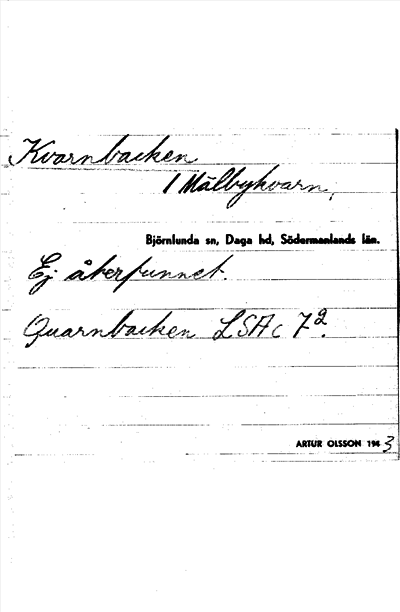 Kvarnbacken
/ Målbykvarn,
Björnlunda sn, Daga hd, Södermanlands län.
Ej återfunnet.
Quarnbacken LSAc 7².
ARTUR OLSSON 1943